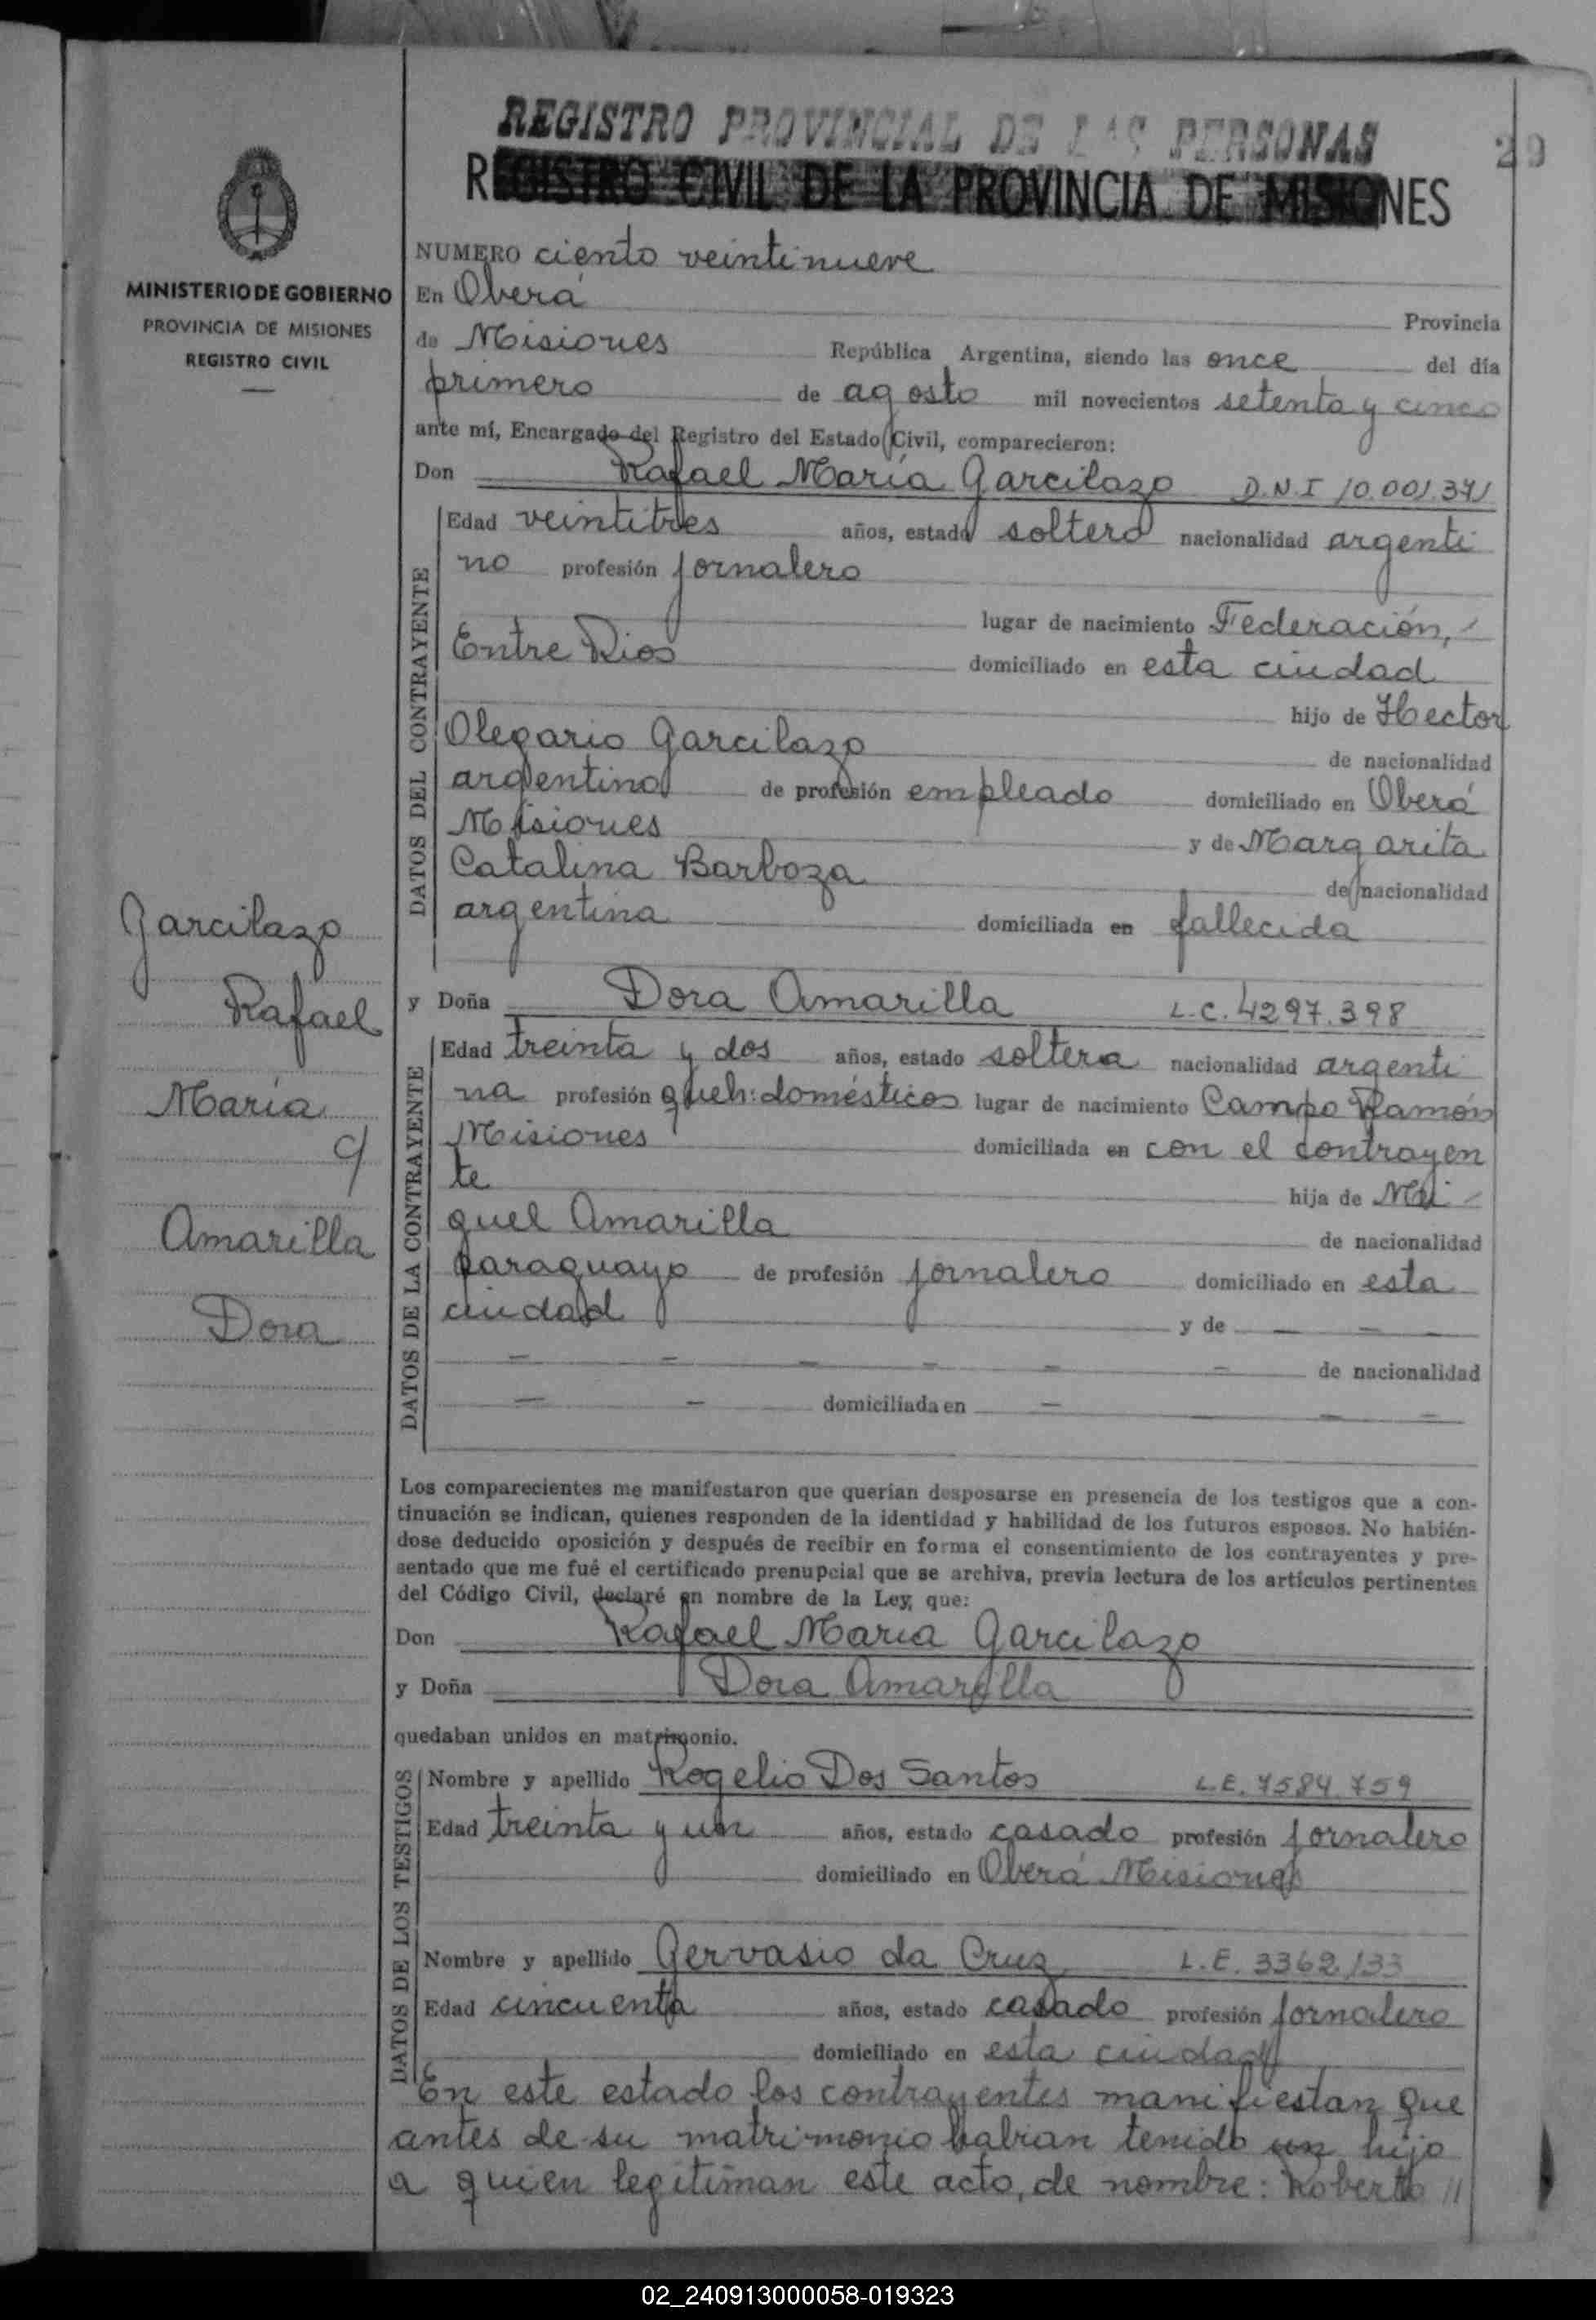 REGISTRO PROVINCIAL DE LAS PERSONAS
29
REGISTRO CIVIL DE LA PROVINCIA DE MISIONES
MINISTERIO DE GOBIERNO
PROVINCIA DE MISIONES
REGISTRO CIVIL
Garcilazo
Rafael
María
c/
Amarilla
Dora
NUMERO ciento veintinueve
En Oberá Provincia
de Misiones República Argentina, siendo las once del día
primero de agosto mil novecientos setenta y cinco
ante mí, Encargado del Registro del Estado Civil, comparecieron:
Don Rafael María Garcilazo D.N.I 10.001.371
DATOS DEL CONTRAYENTE
Edad veintitres años, estado soltero nacionalidad argenti
no profesión jornalero
lugar de nacimiento Federación,
Entre Rios domiciliado en esta ciudad
hijo de Hector
Olegario Garcilazo de nacionalidad
argentino de profesión empleado domiciliado en Oberá
Misiones y de Margarita
Catalina Barboza de nacionalidad
argentina domiciliada en fallecida
y Doña Dora Amarilla L.C. 4297.398
DATOS DE LA CONTRAYENTE
Edad treinta y dos años, estado soltera nacionalidad argenti
na profesión queh: domésticos lugar de nacimiento Campo Ramón
Misiones domiciliada en con el contrayen
te hija de Mi
guel Amarilla de nacionalidad
paraguayo de profesión jornalero domiciliado en esta
ciudad y de — — —
— — — — — — de nacionalidad
— — domiciliada en — — —
Los comparecientes me manifestaron que querían desposarse en presencia de los testigos que a con-
tinuación se indican, quienes responden de la identidad y habilidad de los futuros esposos. No habién-
dose deducido oposición y después de recibir en forma el consentimiento de los contrayentes y pre-
sentado que me fué el certificado prenupcial que se archiva, previa lectura de los artículos pertinentes
del Código Civil, declaré en nombre de la Ley, que:
Don Rafael Maria Garcilazo
y Doña Dora Amarilla
quedaban unidos en matrimonio.
DATOS DE LOS TESTIGOS
Nombre y apellido Rogelio Dos Santos L.E. 7584.759
Edad treinta y un años, estado casado profesión jornalero
domiciliado en Oberá Misiones
Nombre y apellido Gervasio da Cruz L.E. 3362.133
Edad cincuenta años, estado casado profesión jornalero
domiciliado en esta ciudad
En este estado los contrayentes manifiestan que
antes de su matrimonio habian tenido un hijo
a quien legitiman este acto, de nombre: Roberto //
02_240913000058-019323